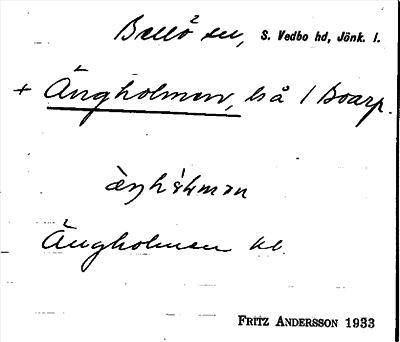 Bellö sn, S. Vedbo hd, Jönk. l.
+ Ängholmen, lså / Boarp.
Ängholmen kl.
FRITZ ANDERSSON 1933